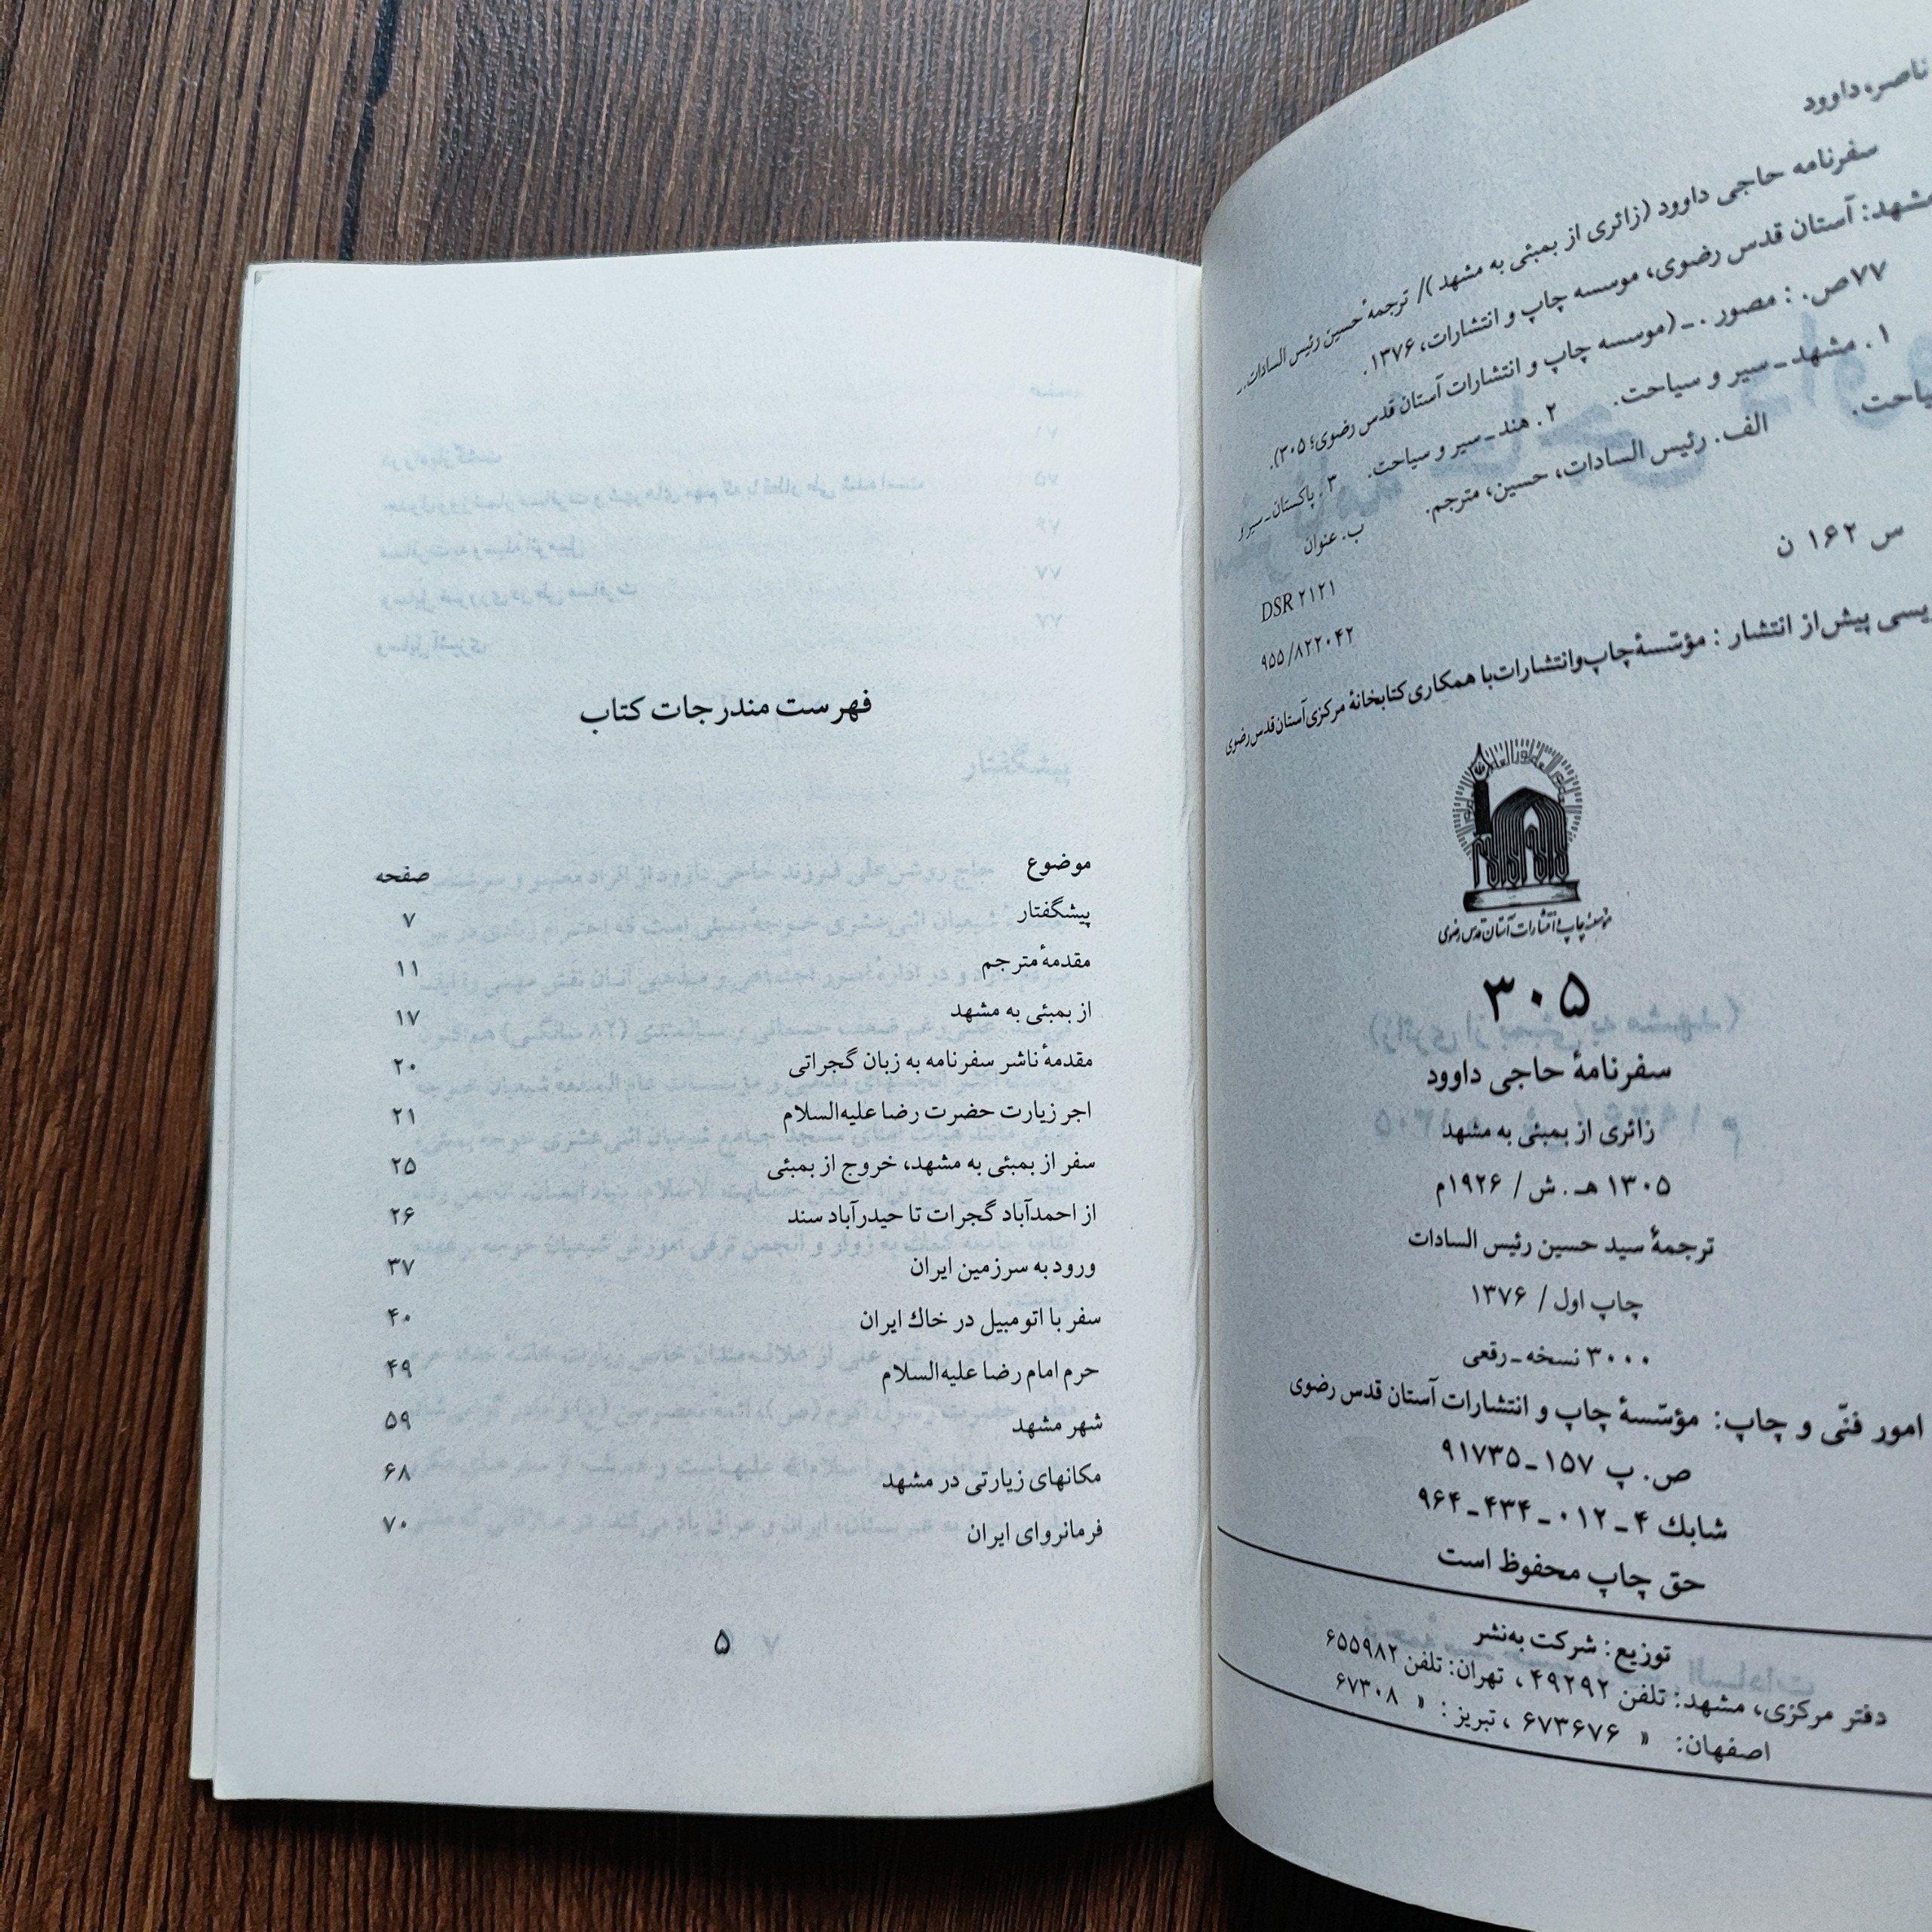 ناصر، داوود
سفرنامه حاجی داوود (زائری از بمبئی به مشهد )/ ترجمهٔ حسین رئیس السادات._
مشهد: آستان قدس رضوی، موسسه چاپ و انتشارات، ۱۳۷۶ .
۷۷ص. : مصور . ـ (موسسه چاپ و انتشارات آستان قدس رضوی؛ ۳۰۵).
۱ . مشهد ـ سیر و سیاحت. ۲ . هند ـ سیر و سیاحت. ۳ . پاکستان ـ سیر و
سیاحت. الف. رئیس السادات، حسین، مترجم. ب. عنوان
س ۱۶۲ ن
DSR ۲۱۲۱
۹۵۵/۸۲۲۰۴۲
پیش‌از انتشار : مؤسّسهٔ چاپ‌وانتشارات‌با همکاری کتابخانهٔ مرکزی‌آستان‌قدس‌رضوی
مؤسسهٔ چاپ و انتشارات آستان قدس رضوی
۳۰۵
سفرنامهٔ حاجی داوود
زائری از بمبئی به مشهد
۱۳۰۵ هـ . ش / ۱۹۲۶م
ترجمهٔ سید حسین رئیس السادات
چاپ اول / ۱۳۷۶
۳۰۰۰ نسخه ـ رقعی
امور فنّی و چاپ: مؤسّسهٔ چاپ و انتشارات آستان قدس رضوی
ص. پ ۱۵۷ـ۹۱۷۳۵
شابك ۴ ـ ۰۱۲ ـ ۴۳۴ ـ ۹۶۴
حق چاپ محفوظ است
توزیع : شرکت به‌نشر
دفتر مرکزی، مشهد: تلفن ۴۹۲۹۲ ، تهران: تلفن ۶۵۵۹۸۲
اصفهان: » ۶۷۳۶۷۶ ، تبریز : » ۶۷۳۰۸
فهرست مندرجات کتاب
موضوع صفحه
پیشگفتار ۷
مقدمهٔ مترجم ۱۱
از بمبئی به مشهد ۱۷
مقدمهٔ ناشر سفرنامه به زبان گجراتی ۲۰
اجر زیارت حضرت رضا علیه‌السلام ۲۱
سفر از بمبئی به مشهد، خروج از بمبئی ۲۵
از احمدآباد گجرات تا حیدرآباد سند ۲۶
ورود به سرزمین ایران ۳۷
سفر با اتومبیل در خاك ایران ۴۰
حرم امام رضا علیه‌السلام ۴۹
شهر مشهد ۵۹
مکانهای زیارتی در مشهد ۶۸
فرمانروای ایران ۷۰
۵